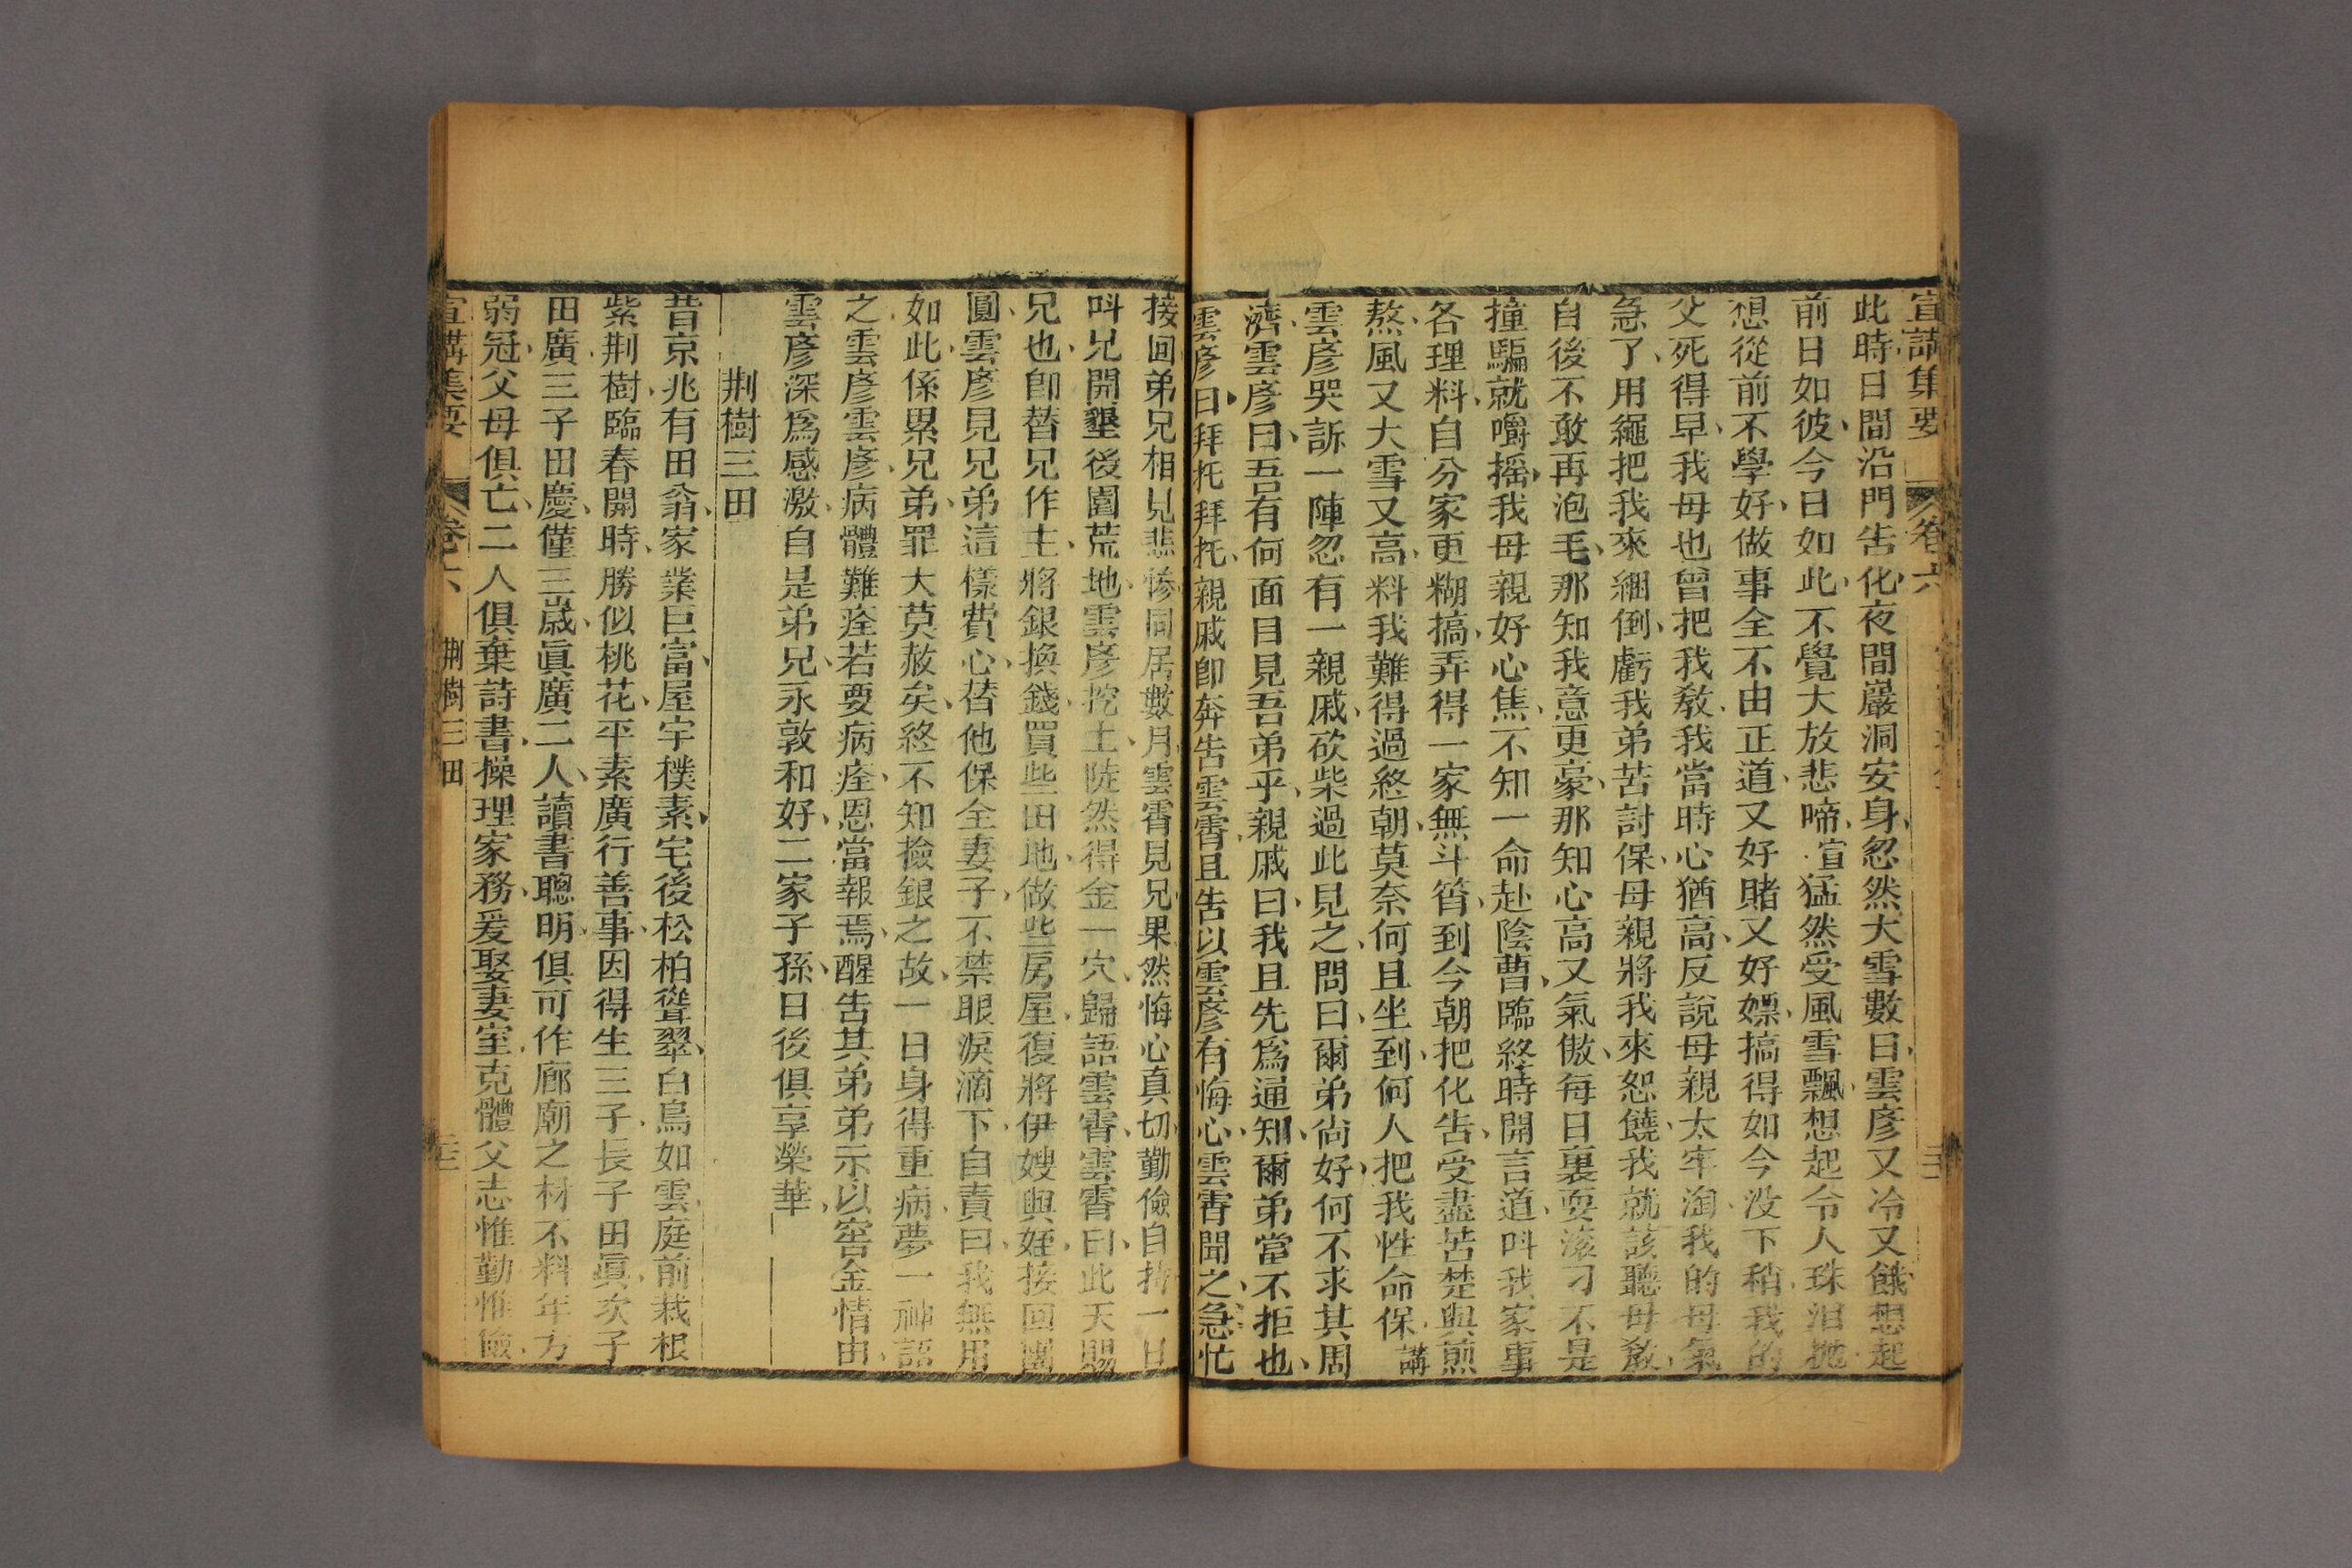 宣講集要 卷六
此時日間沿門吿化夜間巖洞安身忽然大雪數日雲彥又冷又餓想起
前日如彼今日如此不覺大放悲啼宣猛然受風雪飄想起令人珠泪抛
想從前不學好做事全不由正道又好賭又好嫖搞得如今没下稍我的
父死得早我母也曾把我敎我當時心猶高反說母親太牢淘我的母氣
急了用繩把我來綑倒虧我弟苦討保母親將我來恕饒我就該聽母敎
自後不敢再泡毛那知我意更豪那知心高又氣傲每日裏耍滚刁不是
撞騙就嚼摇我母親好心焦不知一命赴陰曹臨終時開言道呌我家事
各理料自分家更糊搞弄得一家無斗筲到今朝把化吿受盡苦楚與煎
熬風又大雪又高料我難得過終朝莫奈何且坐到何人把我性命保講
雲彥哭訴一陣忽有一親戚砍柴過此見之問曰爾弟尙好何不求其周
濟雲彥曰吾有何面目見吾弟乎親戚曰我且先爲通知爾弟當不拒也
雲彥曰拜托拜托親戚卽奔吿雲霄且吿以雲彥有悔心雲霄聞之急忙
接囬弟兄相見悲慘同居數月雲霄見兄果然悔心真切勤儉自持一日
呌兄開墾後園荒地雲彥挖土陡然得金一穴歸語雲霄雲霄曰此天賜
兄也卽替兄作主將銀換錢買些田地做些房屋復將伊嫂與姪接回團
圓雲彥見兄弟這樣費心替他保全妻子不禁眼淚滴下自責曰我無用
如此係累兄弟罪大莫赦矣終不知撿銀之故一日身得重病夢一神語
之雲彥雲彥病體難痊若要病痊恩當報焉醒吿其弟弟示以窖金情由
雲彥深爲感激自是弟兄永敦和好二家子孫日後俱享榮華
荆樹三田
昔京兆有田翁家業巨富屋宇樸素宅後松柏聳翠白鳥如雲庭前栽根
紫荆樹臨春開時勝似桃花平素廣行善事因得生三子長子田眞次子
田廣三子田慶僅三歲眞廣二人讀書聰明俱可作廊廟之材不料年方
弱冠父母俱亡二人俱棄詩書操理家務爰娶妻室克體父志惟勤惟儉
宣講集要 卷六 荆樹三田